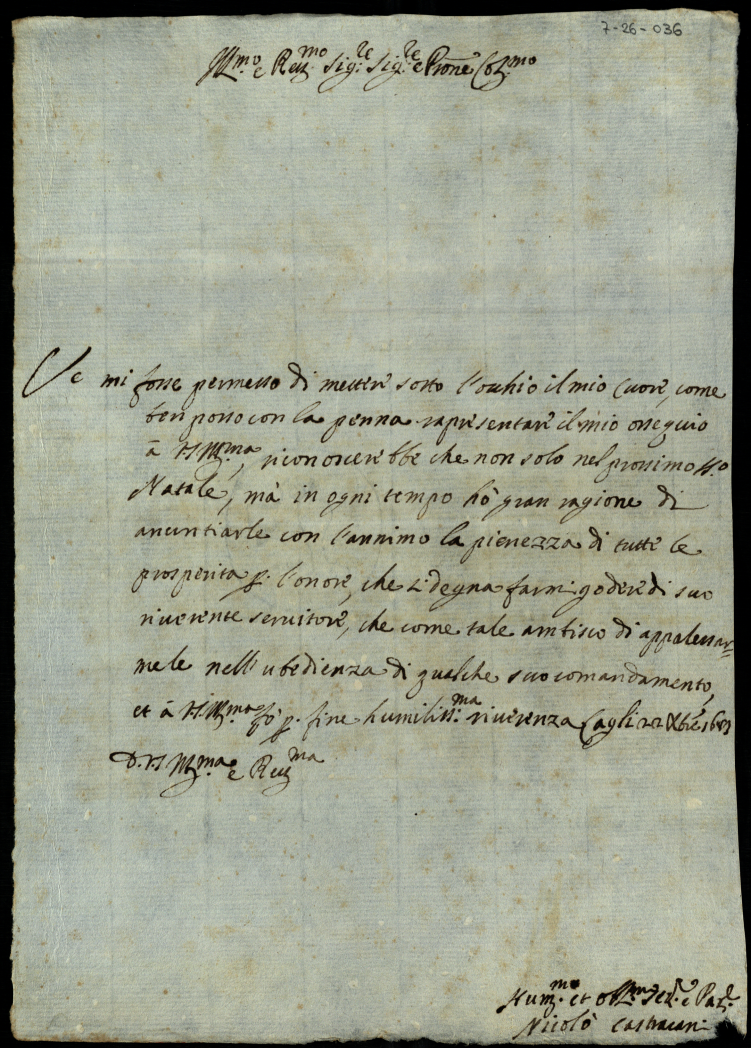 7-26-036
Ill.mo e Reu.mo Sig.re Sig.re e Prone Col.mo
Se mi fosse permesso di mettere sotto l'occhio il mio Cuore, come
ben posso con la penna rapresentare il mio ossequio
à VS Ill.ma, riconoscerebbe che non solo nel prossimo SS.o
Natale, mà in ogni tempo hò gran ragione di
anuntiarle con l'annimo la pienezza di tutte le
prosperità p. l'onore, che si degna farmi godere di suo
riuerente seruitore, che come tale ambisco di appalessar=
mele nell'ubedienza di qualche suo comandamento,
et à VS Ill.ma fò p. fine humiliss.ma riuerenza Cagli 22 Xbre
D. VS Ill.ma e Reu.ma
Hum.mo et obl.mo Ser.e e Par.
Nicolò Castracani